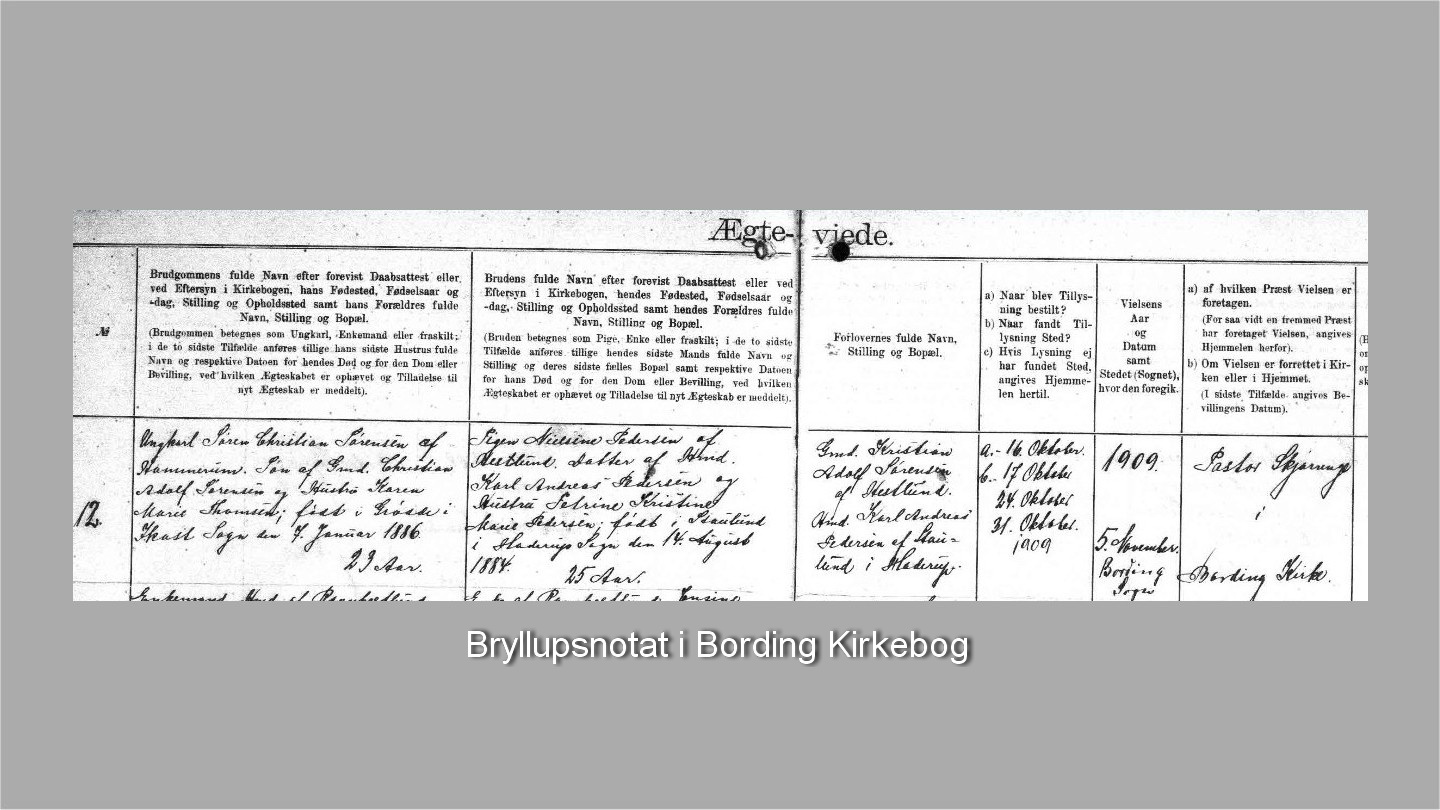 Ægte-
viede.
№
Brudgommens fulde Navn efter forevist Daabsattest eller
ved Eftersyn i Kirkebogen, hans Fødested, Fødselsaar og
-dag, Stilling og Opholdssted samt hans Forældres fulde
Navn, Stilling og Bopæl.
(Brudgommen betegnes som Ungkarl, Enkemand eller fraskilt;
i de to sidste Tilfælde anføres tillige hans sidste Hustrus fulde
Navn og respektive Datoen for hendes Død og for den Dom eller
Bevilling, ved hvilken Ægteskabet er ophævet og Tilladelse til
nyt Ægteskab er meddelt).
Brudens fulde Navn efter forevist Daabsattest eller ved
Eftersyn i Kirkebogen, hendes Fødested, Fødselsaar og
-dag, Stilling og Opholdssted samt hendes Forældres fulde
Navn, Stilling og Bopæl.
(Bruden betegnes som Pige, Enke eller fraskilt; i de to sidste
Tilfælde anføres tillige hendes sidste Mands fulde Navn og
Stilling og deres sidste fælles Bopæl samt respektive Datoen
for hans Død og for den Dom eller Bevilling, ved hvilken
Ægteskabet er ophævet og Tilladelse til nyt Ægteskab er meddelt).
Forlovernes fulde Navn,
Stilling og Bopæl.
a) Naar blev Tillys-
ning bestilt?
b) Naar fandt Til-
lysning Sted?
c) Hvis Lysning ej
har fundet Sted,
angives Hjemme-
len hertil.
Vielsens
Aar
og
Datum
samt
Stedet (Sognet),
hvor den foregik.
a) af hvilken Præst Vielsen er
foretagen.
(For saa vidt en fremmed Præst
har foretaget Vielsen, angives
Hjemmelen herfor).
b) Om Vielsen er forrettet i Kir-
ken eller i Hjemmet.
(I sidste Tilfælde angives Be-
villingens Datum).
12.
Ungkarl Søren Christian Sørensen af
Hammerum. Søn af Gmd. Christian
Adolf Sørensen og Hustru Karen
Marie Thomsen; født i i
Ikast Sogn den 7. Januar 1886.
23 Aar.
Pigen Nielsine Pedersen af
Hestlund. Datter af Hmd.
Karl Andreas Pedersen og
Hustru Petrine Kristine
Marie Pedersen; født i Staulund
i Haderup Sogn den 14. August
1884.
25 Aar.
Gmd. Kristian
Adolf Sørensen
af Hestlund.
Hmd. Karl Andreas
Pedersen af Stau-
lund i Haderup.
a.- 16. Oktober.
b.- 17 Oktober
24. Oktober
31. Oktober.
1909
1909.
5. November.
Bording
Sogn
Pastor
i
Bording Kirke.
Bryllupsnotat i Bording Kirkebog